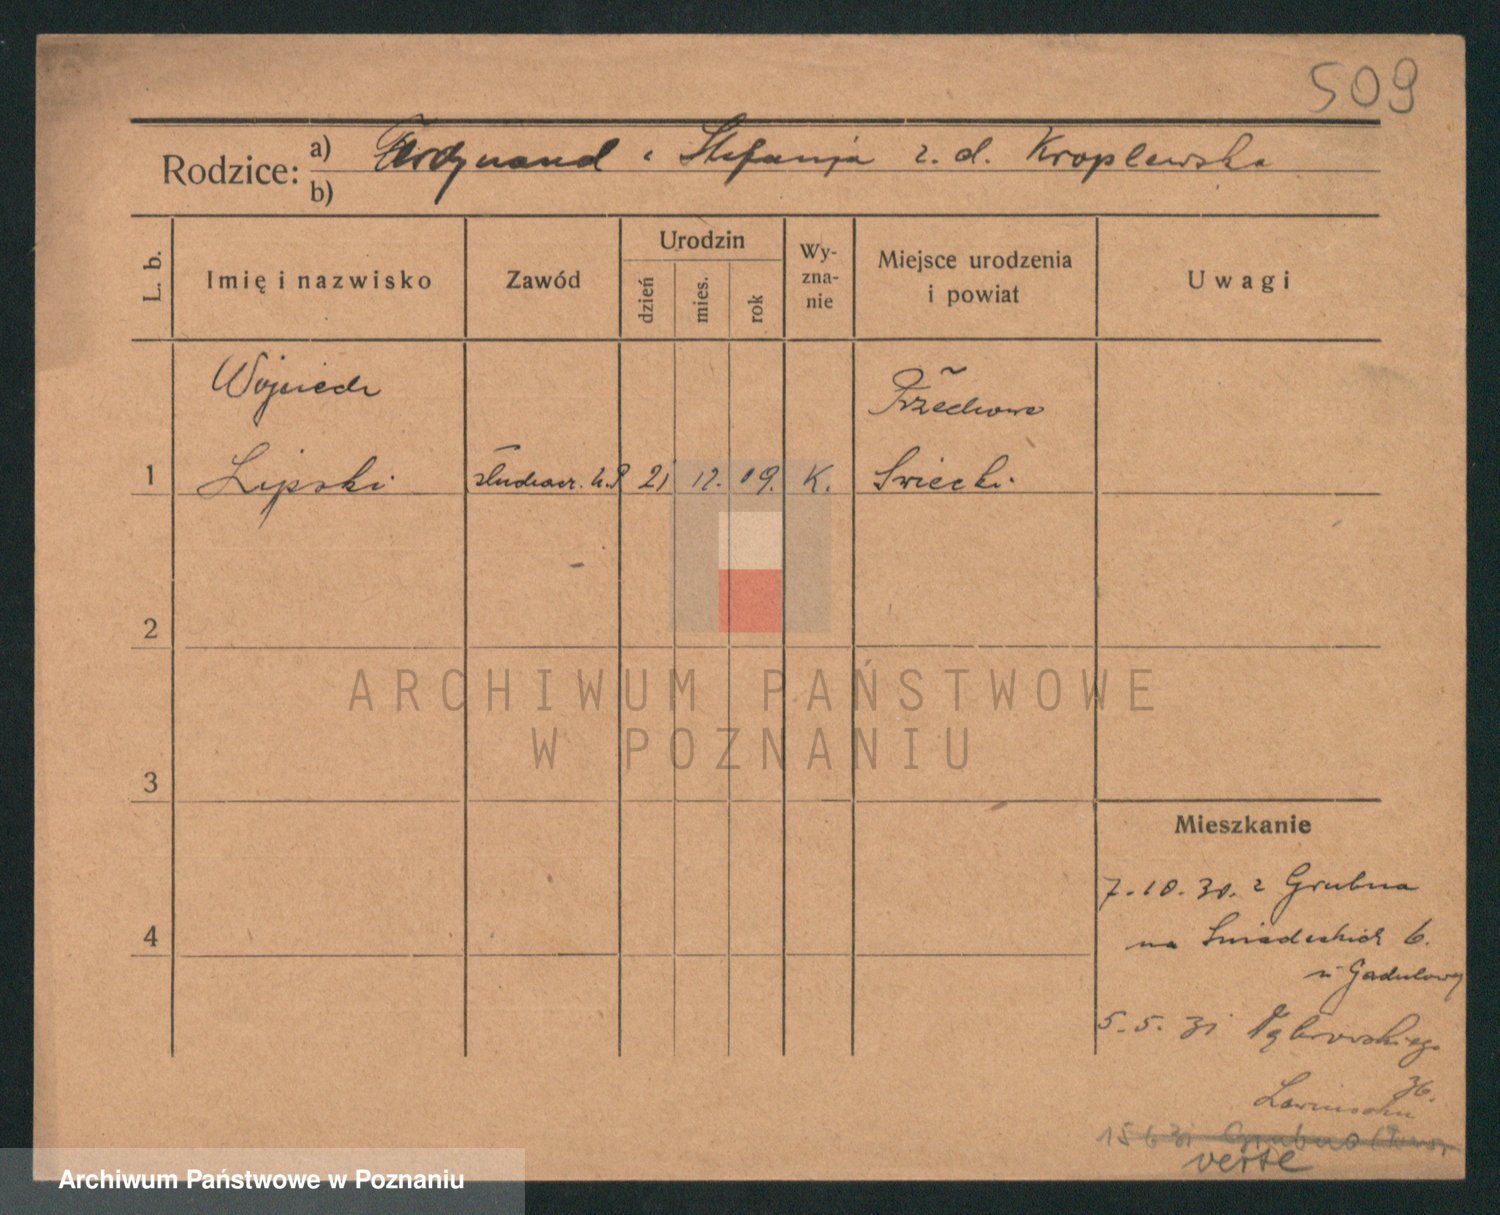 509
Rodzice: a) Ferdynand i Stefanja z. d. Kroplewska
b)
L. b.
Imię i nazwisko
Zawód
Urodzin
dzień
mies.
rok
Wy-
zna-
nie
Miejsce urodzenia
i powiat
Uwagi
Wojciech
Lipski
1
U.P
21
12.
09.
K.
Przechowo
Świecki
2
ARCHIWUM PAŃSTWOWE
W POZNANIU
3
Mieszkanie
7.10.30. z Grubna
na Śniadeckich 6.
u Gadulowej
4
5.5.31 Dąbrowskiego
36.
15 6 31 Grubno
verte
Archiwum Państwowe w Poznaniu